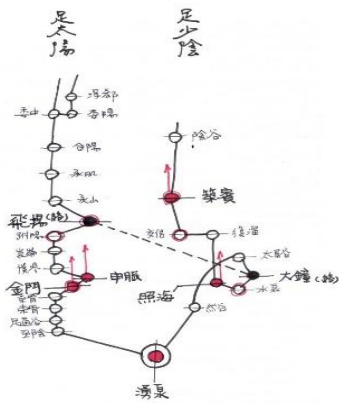 足太陽
足少陰
委中
合陽
承山
飛揚(絡)
崑崙
申脈
金門
京骨
束骨
足通谷
至陰
陰谷
築賓
交信
復溜
大鐘(絡)
水泉
照海
然谷
湧泉